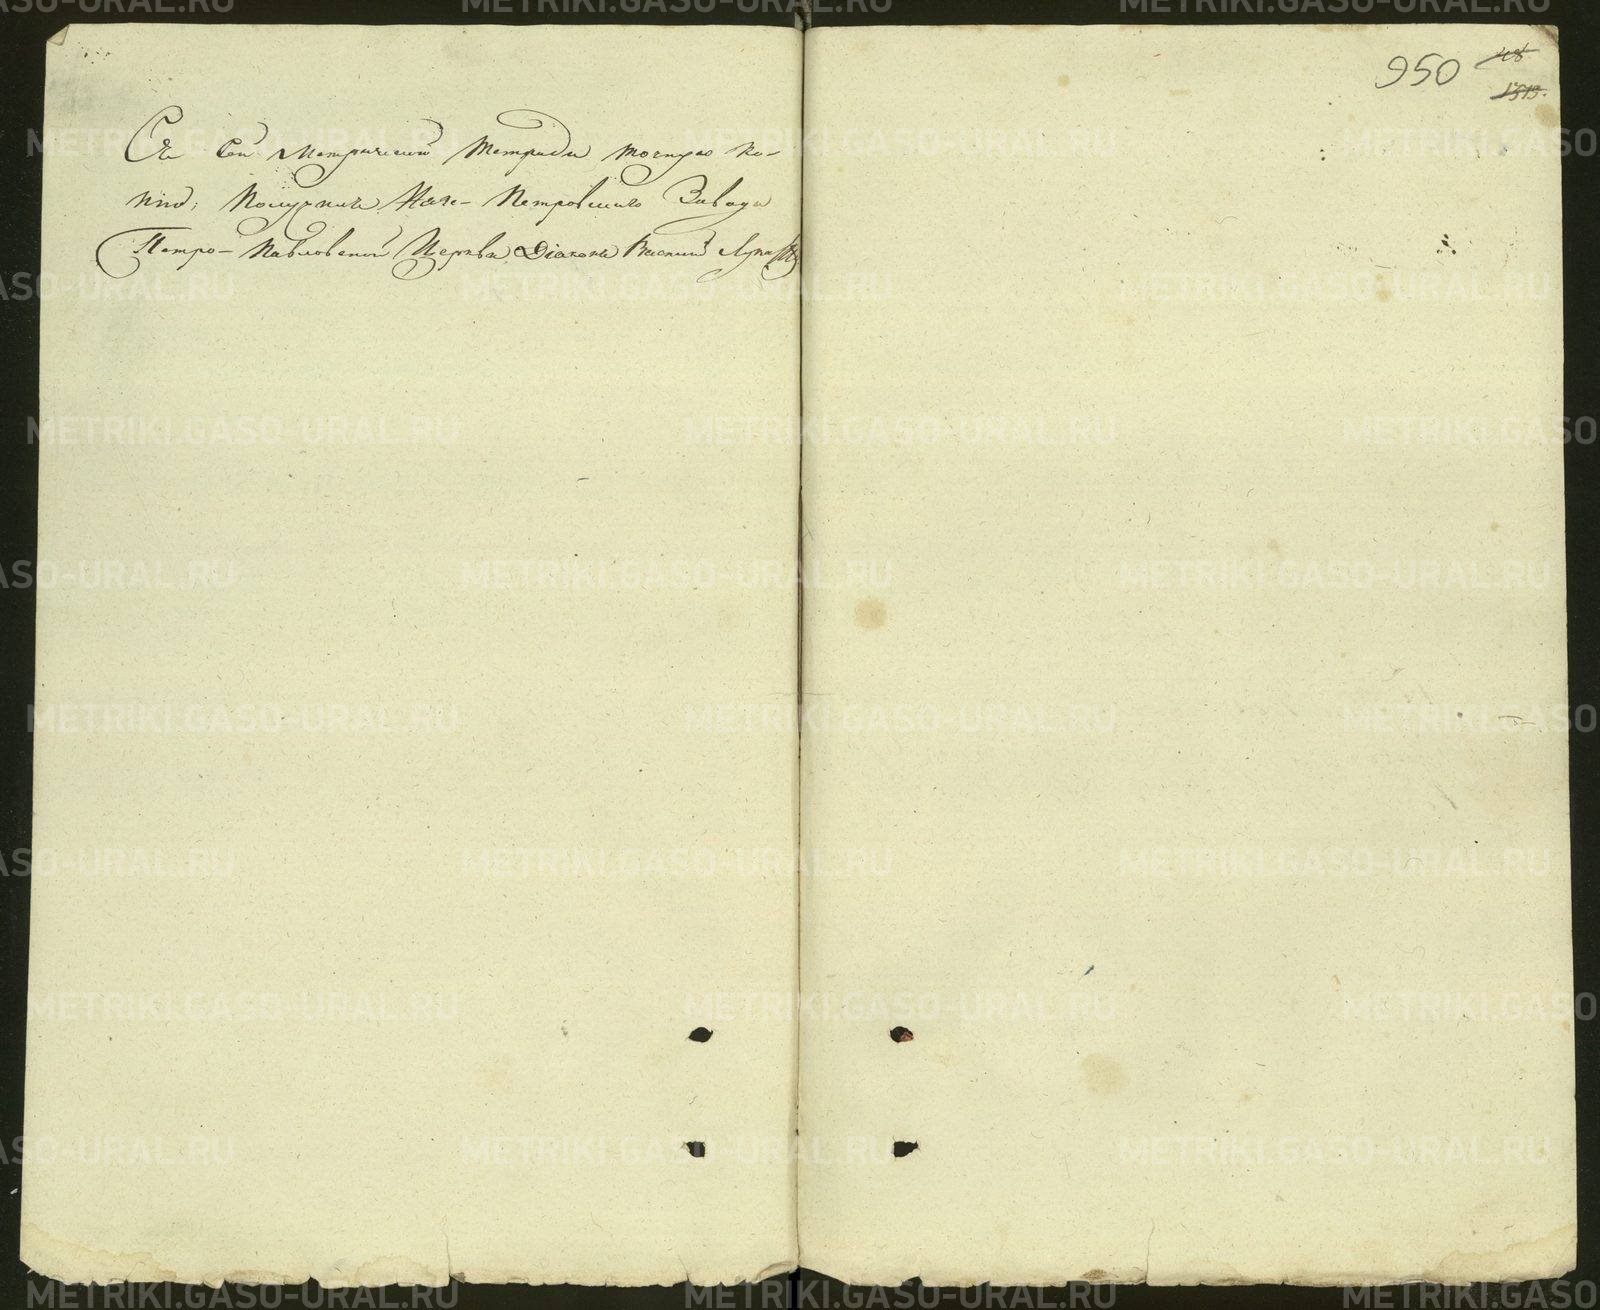 Съ сей Метрической тетради точную ко-
пію, получилъ Нязе-Петровскаго Завода
Петро-Павловской Церкви Діаконъ Василий
950
48
1513.
METRIKI.GASO-URAL.RU